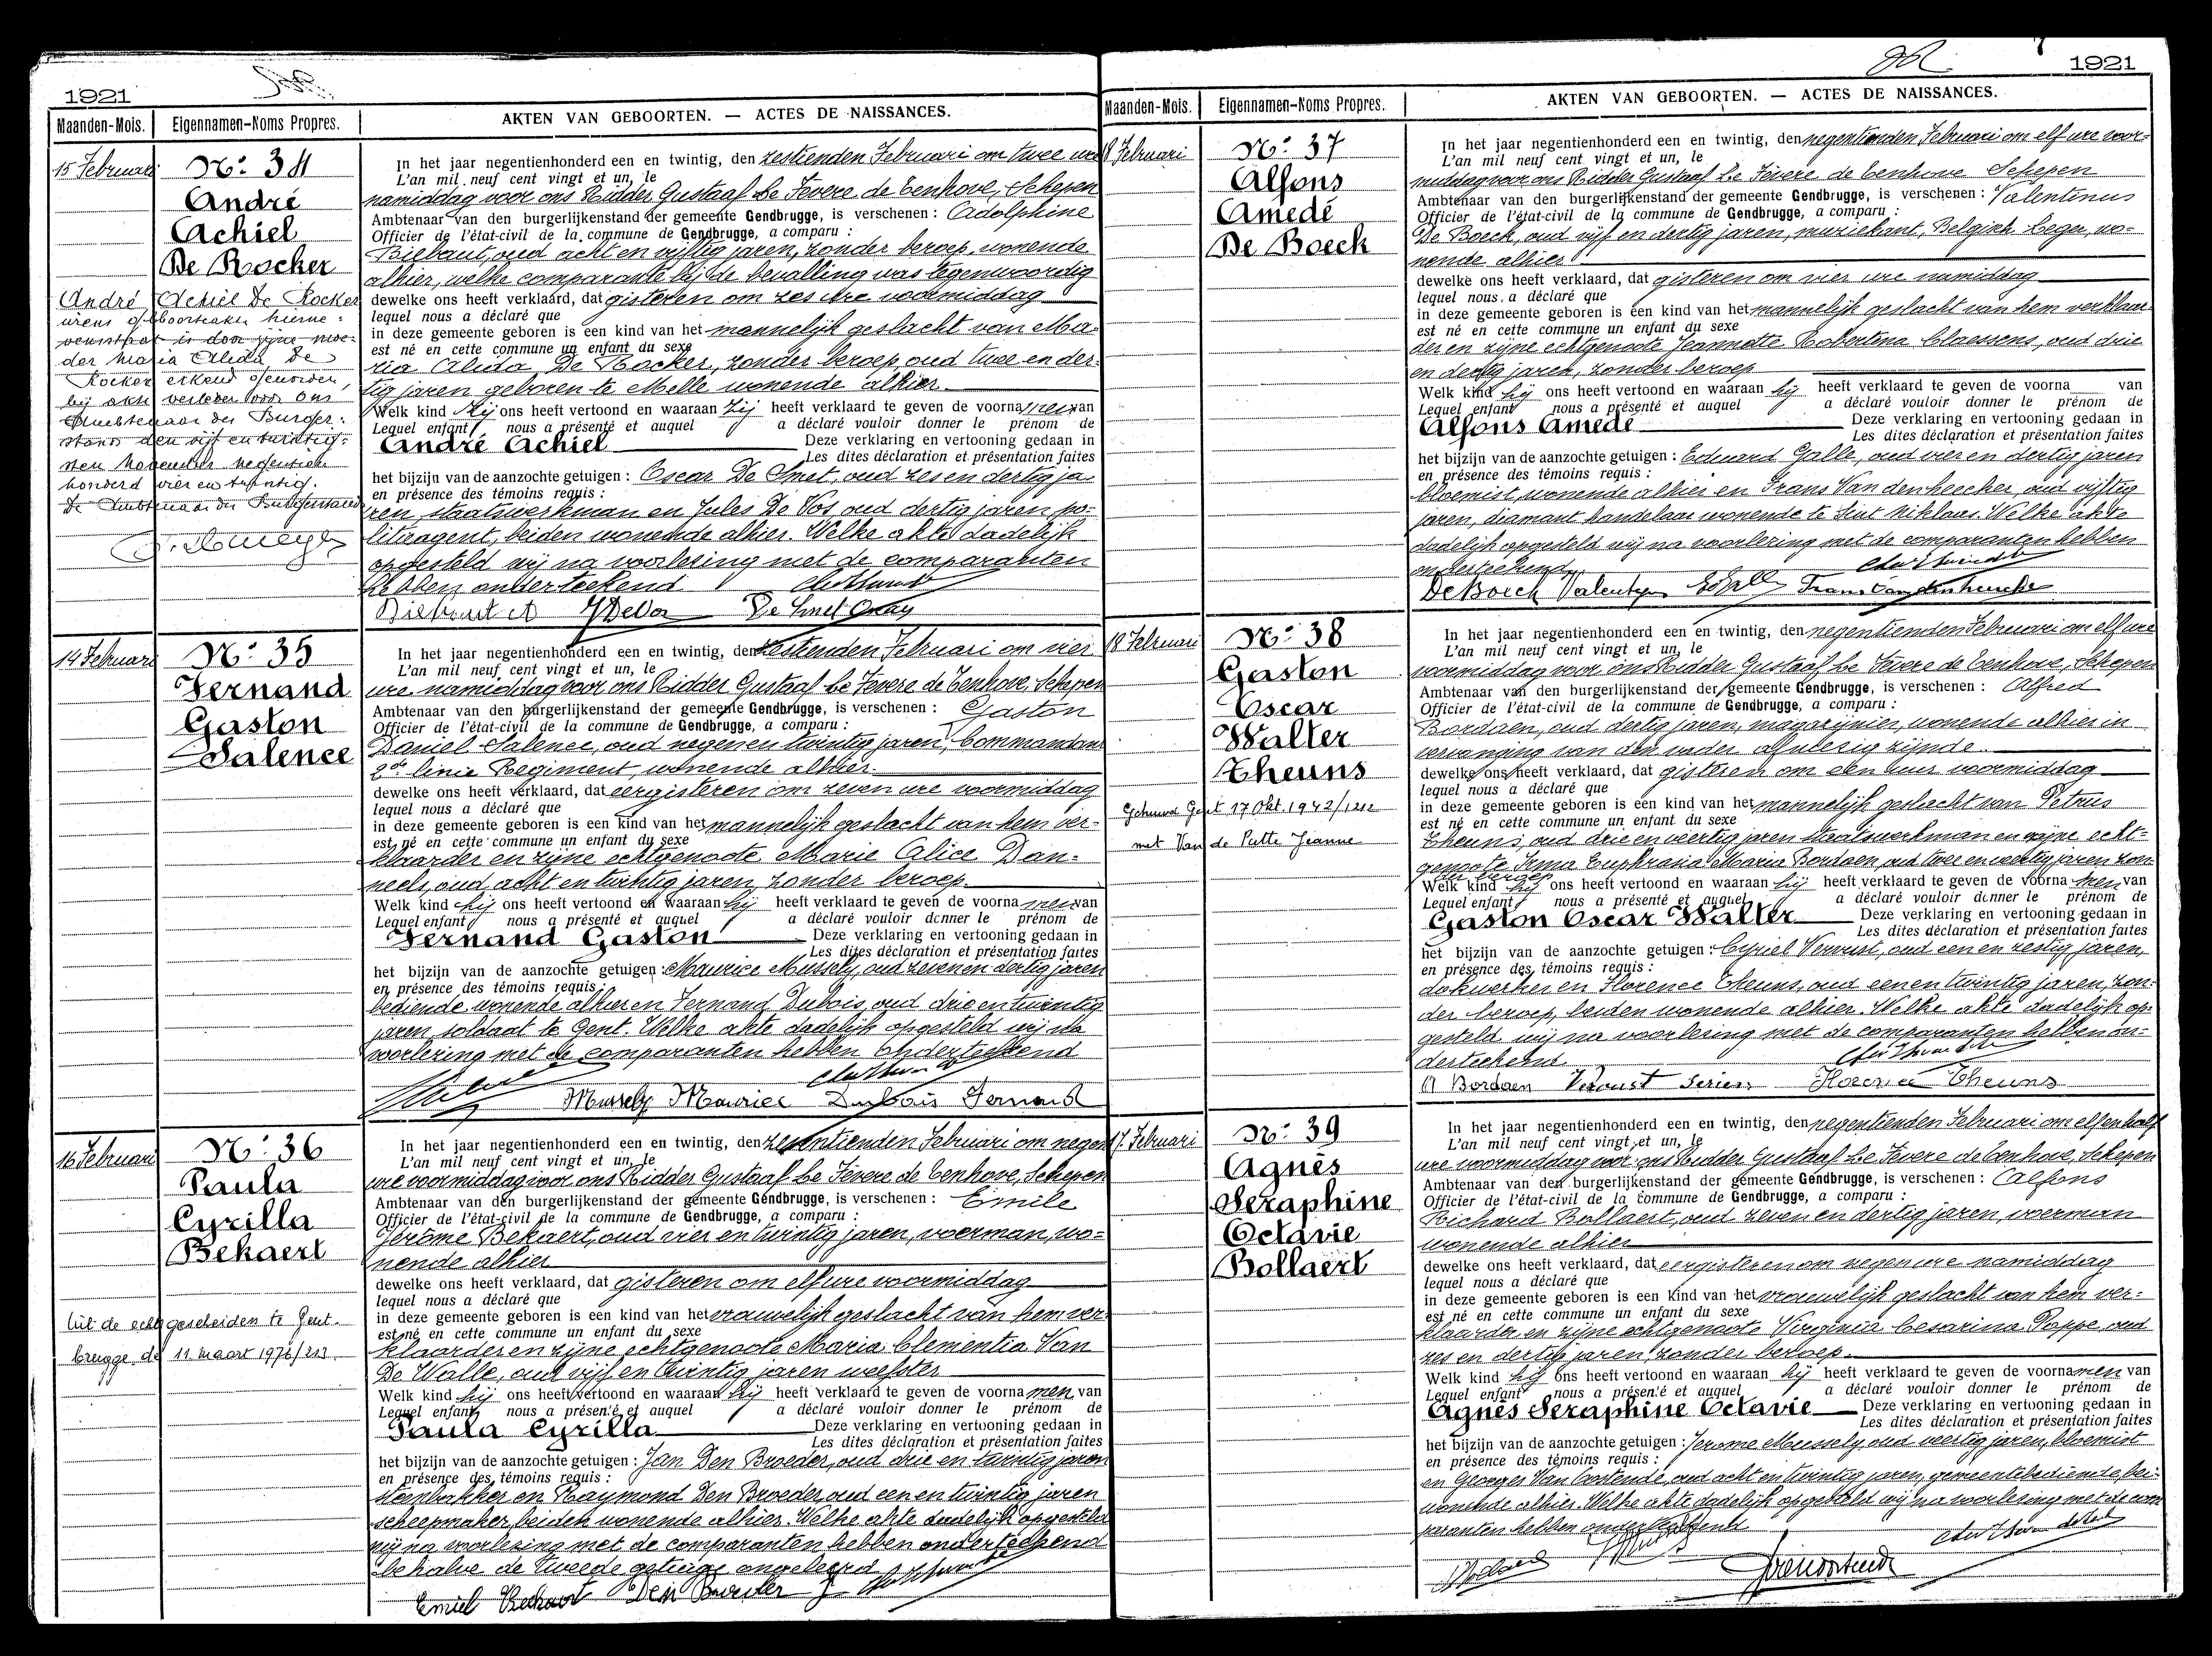 1921
Maanden-Mois.
Eigennamen-Noms Propres.
AKTEN VAN GEBOORTEN. — ACTES DE NAISSANCES.
15 Februari
No: 34
André
Achiel
De Rocker
André Achiel De Rocker
wiens geboorteakte hierne:
venstaat is door zijne moe:
der Maria Alida De
Rocker erkend geworden,
bij akte verleden voor ons
Ambtenaar des Burger:
stands den vijf en twintig:
sten November negentien
honderd vier en twintig.
De Ambtenaar des Burgerstands
In het jaar negentienhonderd een en twintig, den zestienden Februari om twee ure
L'an mil neuf cent vingt et un, le
namiddag voor ons Ridder Gustaaf Le Fevere de Tenhove, Schepen
Ambtenaar van den burgerlijkenstand der gemeente Gendbrugge, is verschenen : Adolphine
Officier de l'état-civil de la commune de Gendbrugge, a comparu :
Biebaut, oud acht en vijftig jaren, zonder beroep, wonende
alhier, welke comparante bij de bevalling was tegenwoordig
dewelke ons heeft verklaard, dat gisteren om zes ure voormiddag
lequel nous a déclaré que
in deze gemeente geboren is een kind van het mannelijk geslacht van Ma-
est né en cette commune un enfant du sexe
ria Alida De Rocker, zonder beroep, oud twee en der-
tig jaren geboren te Melle wonende alhier.
Welk kind zij ons heeft vertoond en waaraan zij heeft verklaard te geven de voornamen van
Lequel enfant nous a présenté et auquel a déclaré vouloir donner le prénom de
André Achiel Deze verklaring en vertooning gedaan in
Les dites déclaration et présentation faites
het bijzijn van de aanzochte getuigen : Oscar De Smet, oud zes en dertig ja-
en présence des témoins requis :
ren, staatswerkman en Jules De Vos, oud dertig jaren po-
litieagent, beiden wonende alhier. Welke akte dadelijk
opgesteld wij na voorlezing met de comparanten
hebben onderteekend
Biebaut A J Devos De Smet Oscar
14 Februari
No: 35
Fernand
Gaston
Salence
In het jaar negentienhonderd een en twintig, den zestienden Februari om vier
L'an mil neuf cent vingt et un, le
ure namiddag voor ons Ridder Gustaaf Le Fevere de Tenhove, Schepen
Ambtenaar van den burgerlijkenstand der gemeente Gendbrugge, is verschenen : Gaston
Officier de l'état-civil de la commune de Gendbrugge, a comparu :
Daniel Salence, oud negen en twintig jaren, Commandant
2de linie Regiment, wonende alhier
dewelke ons heeft verklaard, dat eergisteren om zeven ure voormiddag
lequel nous a déclaré que
in deze gemeente geboren is een kind van het mannelijk geslacht van hem ver-
est né en cette commune un enfant du sexe
klaarder en zijne echtgenoote Marie Alice Dan-
neels, oud acht en twintig jaren, zonder beroep.
Welk kind hij ons heeft vertoond en waaraan hij heeft verklaard te geven de voornamen van
Lequel enfant nous a présenté et auquel a déclaré vouloir donner le prénom de
Fernand Gaston Deze verklaring en vertooning gedaan in
Les dites déclaration et présentation faites
het bijzijn van de aanzochte getuigen : Maurice Mussely, oud zeven en dertig jaren
en présence des témoins requis :
bediende wonende alhier en Fernand Dubois, oud drie en twintig
jaren, soldaat te Gent. Welke akte dadelijk opgesteld wij na
voorlezing met de comparanten hebben onderteekend
Mussely Maurice Dubois Fernand
16 Februari
No: 36
Paula
Cyrilla
Bekaert
Uit de echt gescheiden te Gent-
brugge, de 11 maart 1972/213
In het jaar negentienhonderd een en twintig, den zeventienden Februari om negen
L'an mil neuf cent vingt et un, le
ure voormiddag voor ons Ridder Gustaaf Le Fevere de Tenhove, Schepen
Ambtenaar van den burgerlijkenstand der gemeente Gendbrugge, is verschenen : Emile
Officier de l'état-civil de la commune de Gendbrugge, a comparu :
Jerome Bekaert, oud vier en twintig jaren, voerman, wo-
nende alhier
dewelke ons heeft verklaard, dat gisteren om elf ure voormiddag
lequel nous a déclaré que
in deze gemeente geboren is een kind van het vrouwelijk geslacht van hem ver-
est né en cette commune un enfant du sexe
klaarder en zijne echtgenoote Maria Clementia Van
De Walle, oud vijf en twintig jaren weefster
Welk kind hij ons heeft vertoond en waaraan hij heeft verklaard te geven de voornamen van
Lequel enfant nous a présenté et auquel a déclaré vouloir donner le prénom de
Paula Cyrilla Deze verklaring en vertooning gedaan in
Les dites déclaration et présentation faites
het bijzijn van de aanzochte getuigen : Jan Den Broeder, oud drie en twintig jaren
en présence des témoins requis :
steenbakker en Raymond Den Broeder, oud een en twintig jaren
scheepmaker, beiden wonende alhier. Welke akte dadelijk opgesteld
wij na voorlezing met de comparanten hebben onderteekend
behalve de tweede getuige ongeleerd
Emiel Bekaert Den Broeder J
1921
Maanden-Mois.
Eigennamen-Noms Propres.
AKTEN VAN GEBOORTEN. — ACTES DE NAISSANCES.
18 Februari
No: 37
Alfons
Amedé
De Boeck
In het jaar negentienhonderd een en twintig, den negentienden Februari om elf ure voor-
L'an mil neuf cent vingt et un, le
middag voor ons Ridder Gustaaf Le Fevere de Tenhove Schepen
Ambtenaar van den burgerlijkenstand der gemeente Gendbrugge, is verschenen : Valentinus
Officier de l'état-civil de la commune de Gendbrugge, a comparu :
De Boeck, oud vijf en dertig jaren, muziekant, Belgisch Leger, wo-
nende alhier
dewelke ons heeft verklaard, dat gisteren om vier ure namiddag
lequel nous a déclaré que
in deze gemeente geboren is een kind van het mannelijk geslacht van hem verklaar-
est né en cette commune un enfant du sexe
der en zijne echtgenoote Jeannette Robertina Claessens, oud drie
en dertig jaren, zonder beroep
Welk kind hij ons heeft vertoond en waaraan hij heeft verklaard te geven de voorna van
Lequel enfant nous a présenté et auquel a déclaré vouloir donner le prénom de
Alfons Amedé Deze verklaring en vertooning gedaan in
Les dites déclaration et présentation faites
het bijzijn van de aanzochte getuigen : Eduard Galle, oud vier en dertig jaren
en présence des témoins requis :
bloemist, wonende alhier en Frans Van denheecker, oud vijftig
jaren, diamant handelaar wonende te Sint Niklaas. Welke akte
dadelijk opgesteld wij na voorlezing met de comparanten hebben
onderteekend
De Boeck Valentyn
18 Februari
No: 38
Gaston
Oscar
Walter
Theuns
Gehuwd Gent 17 Okt. 1942/1212
met Van de Putte Jeanne
In het jaar negentienhonderd een en twintig, den negentienden Februari om elf ure
L'an mil neuf cent vingt et un, le
voormiddag voor ons Ridder Gustaaf Le Fevere de Tenhove, Schepen
Ambtenaar van den burgerlijkenstand der gemeente Gendbrugge, is verschenen : Alfred
Officier de l'état-civil de la commune de Gendbrugge, a comparu :
Bordaen, oud dertig jaren, magazijnier, wonende alhier in
vervanging van den vader afwezig zijnde.
dewelke ons heeft verklaard, dat gisteren om een uur voormiddag
lequel nous a déclaré que
in deze gemeente geboren is een kind van het mannelijk geslacht van Petrus
est né en cette commune un enfant du sexe
Theuns, oud drie en veertig jaren staatswerkman en zijne echt-
genoote Irma Euphrasia Maria Bordaen, oud twee en veertig jaren zon-
der beroep
Welk kind hij ons heeft vertoond en waaraan hij heeft verklaard te geven de voornamen van
Lequel enfant nous a présenté et auquel a déclaré vouloir donner le prénom de
Gaston Oscar Walter Deze verklaring en vertooning gedaan in
Les dites déclaration et présentation faites
het bijzijn van de aanzochte getuigen : Cyriel Vervust, oud een en zestig jaren,
en présence des témoins requis :
dokwerker en Florence Theuns, oud een en twintig jaren, zon-
der beroep, beiden wonende alhier. Welke akte dadelijk op-
gesteld wij na voorlezing met de comparanten hebben on-
derteekend
A Bordaen Theuns
17 Februari
No: 39
Agnès
Seraphine
Octavie
Bollaert
In het jaar negentienhonderd een en twintig, den negentienden Februari om elf en half
L'an mil neuf cent vingt et un, le
ure voormiddag voor ons Ridder Gustaaf Le Fevere de Tenhove, Schepen
Ambtenaar van den burgerlijkenstand der gemeente Gendbrugge, is verschenen : Alfons
Officier de l'état-civil de la commune de Gendbrugge, a comparu :
Richard Bollaert, oud zeven en dertig jaren, voerman
wonende alhier
dewelke ons heeft verklaard, dat eergisteren om negen ure namiddag
lequel nous a déclaré que
in deze gemeente geboren is een kind van het vrouwelijk geslacht van hem ver-
est né en cette commune un enfant du sexe
klaarder en zijne echtgenoote Virginia Cesarina Poppe, oud
zes en dertig jaren, zonder beroep.
Welk kind hij ons heeft vertoond en waaraan hij heeft verklaard te geven de voornamen van
Lequel enfant nous a présenté et auquel a déclaré vouloir donner le prénom de
Agnès Seraphine Octavie Deze verklaring en vertooning gedaan in
Les dites déclaration et présentation faites
het bijzijn van de aanzochte getuigen : Jerome Mussely, oud veertig jaren, bloemist
en présence des témoins requis :
en Georges Van Oostende, oud acht en twintig jaren, gemeentebediende, bei-
wonende alhier. Welke akte dadelijk opgesteld wij na voorlezing met de com
paranten hebben onderteekend